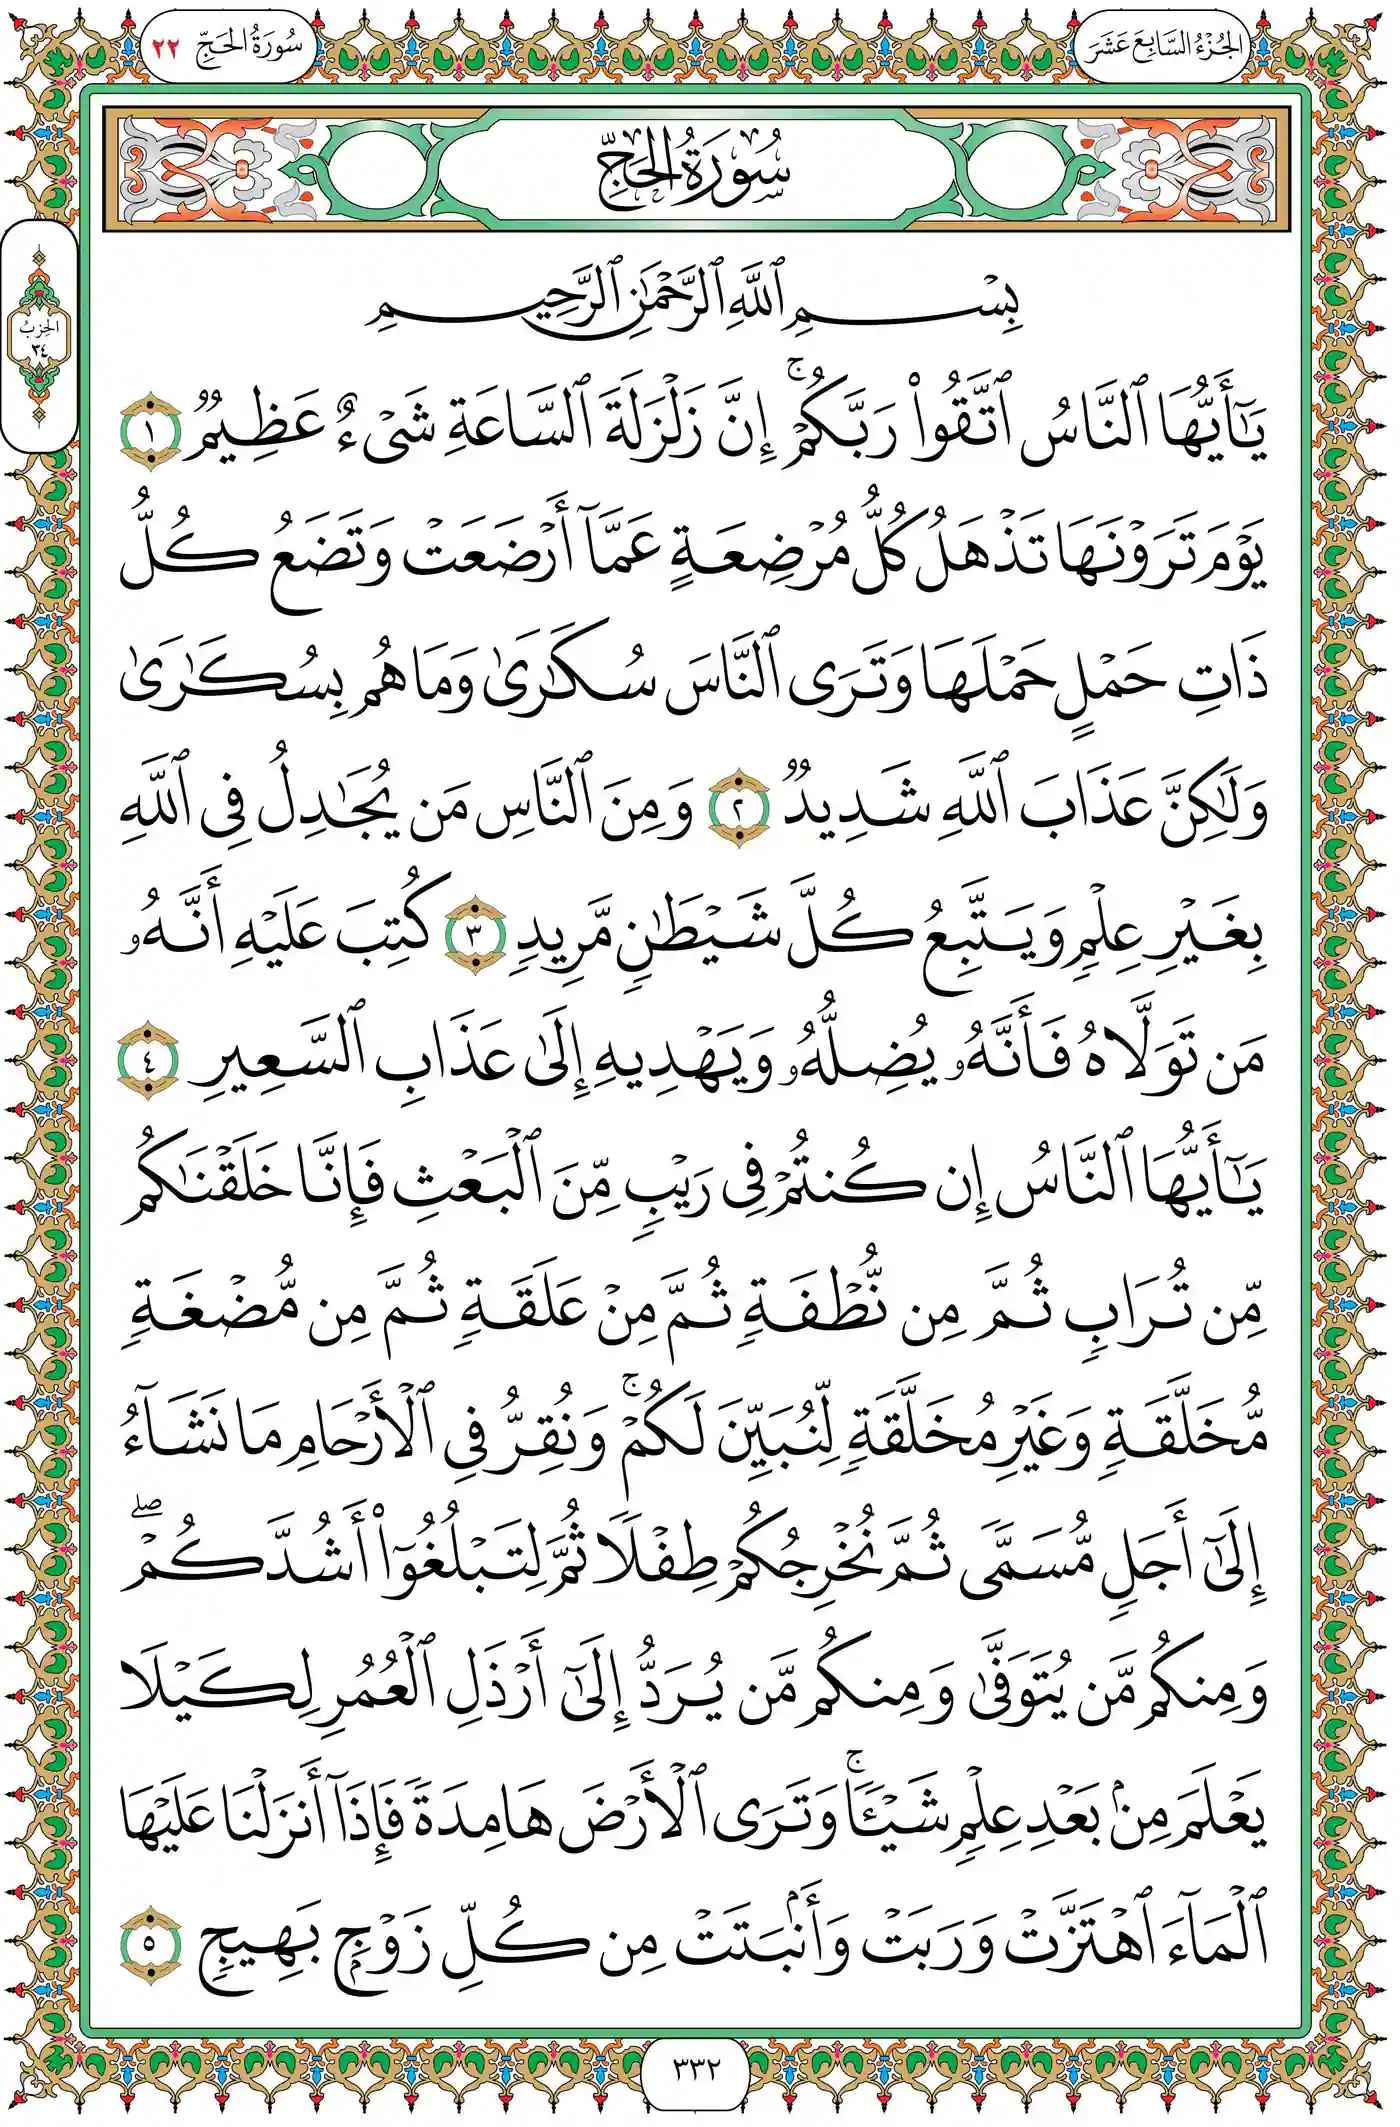 سُورَةُ الحَجِّ ٢٢
الجُزْءُ السَّابِعَ عَشَرَ
سُورَةُ الحَجِّ
الحِزْبُ
٣٤
بِسْمِ ٱللَّهِ ٱلرَّحْمَٰنِ ٱلرَّحِيمِ
يَٰٓأَيُّهَا ٱلنَّاسُ ٱتَّقُوا۟ رَبَّكُمْ ۚ إِنَّ زَلْزَلَةَ ٱلسَّاعَةِ شَىْءٌ عَظِيمٌ ١
يَوْمَ تَرَوْنَهَا تَذْهَلُ كُلُّ مُرْضِعَةٍ عَمَّآ أَرْضَعَتْ وَتَضَعُ كُلُّ
ذَاتِ حَمْلٍ حَمْلَهَا وَتَرَى ٱلنَّاسَ سُكَٰرَىٰ وَمَا هُم بِسُكَٰرَىٰ
وَلَٰكِنَّ عَذَابَ ٱللَّهِ شَدِيدٌ ٢ وَمِنَ ٱلنَّاسِ مَن يُجَٰدِلُ فِى ٱللَّهِ
بِغَيْرِ عِلْمٍ وَيَتَّبِعُ كُلَّ شَيْطَٰنٍ مَّرِيدٍ ٣ كُتِبَ عَلَيْهِ أَنَّهُۥ
مَن تَوَلَّاهُ فَأَنَّهُۥ يُضِلُّهُۥ وَيَهْدِيهِ إِلَىٰ عَذَابِ ٱلسَّعِيرِ ٤
يَٰٓأَيُّهَا ٱلنَّاسُ إِن كُنتُمْ فِى رَيْبٍ مِّنَ ٱلْبَعْثِ فَإِنَّا خَلَقْنَٰكُم
مِّن تُرَابٍ ثُمَّ مِن نُّطْفَةٍ ثُمَّ مِنْ عَلَقَةٍ ثُمَّ مِن مُّضْغَةٍ
مُّخَلَّقَةٍ وَغَيْرِ مُخَلَّقَةٍ لِّنُبَيِّنَ لَكُمْ ۚ وَنُقِرُّ فِى ٱلْأَرْحَامِ مَا نَشَآءُ
إِلَىٰٓ أَجَلٍ مُّسَمًّى ثُمَّ نُخْرِجُكُمْ طِفْلًا ثُمَّ لِتَبْلُغُوٓا۟ أَشُدَّكُمْ ۖ
وَمِنكُم مَّن يُتَوَفَّىٰ وَمِنكُم مَّن يُرَدُّ إِلَىٰٓ أَرْذَلِ ٱلْعُمُرِ لِكَيْلَا
يَعْلَمَ مِنۢ بَعْدِ عِلْمٍ شَيْـًٔا ۚ وَتَرَى ٱلْأَرْضَ هَامِدَةً فَإِذَآ أَنزَلْنَا عَلَيْهَا
ٱلْمَآءَ ٱهْتَزَّتْ وَرَبَتْ وَأَنۢبَتَتْ مِن كُلِّ زَوْجٍۭ بَهِيجٍ ٥
٣٣٢